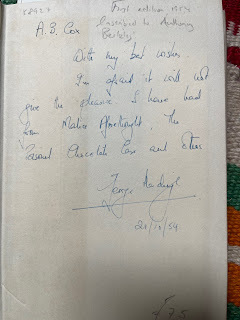 First edition 1954
inscribed to Anthony
Berkeley
A. B. Cox
With my best wishes.
I'm afraid it will not
give the pleasure I have had
from Malice Aforethought. The
Poisoned Chocolates Case and others
21/10/54
£75